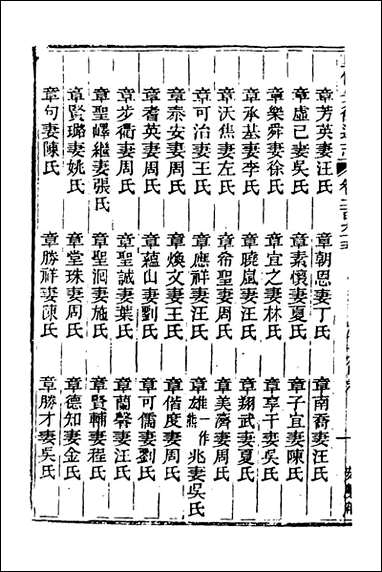 章芳英妻汪氏　章朝恩妻丁氏　章南裔妻汪氏
章虛己妻吳氏　章素懷妻夏氏　章子宜妻陳氏
章樂舜妻徐氏　章宜之妻林氏　章享干妻吳氏
章承基妻李氏　章曉嵐妻汪氏　章翔武妻夏氏
章沃焦妻左氏　章侖聖妻周氏　章美濟妻周氏
章可治妻王氏　章應祥妻汪氏　章雄一作熊兆妻吳氏
章泰安妻周氏　章煥文妻王氏　章偕度妻周氏
章耆英妻周氏　章蘊山妻劉氏　章可儒妻劉氏
章步衢妻周氏　章聖誠妻葉氏　章蘭馨妻汪氏
章聖嶧繼妻張氏　章聖洄妻施氏　章賢輔妻程氏
章賢璐妻姚氏　章堂珠妻周氏　章德知妻金氏
章句妻陳氏　章勝祥妻陳氏　章勝才妻吳氏